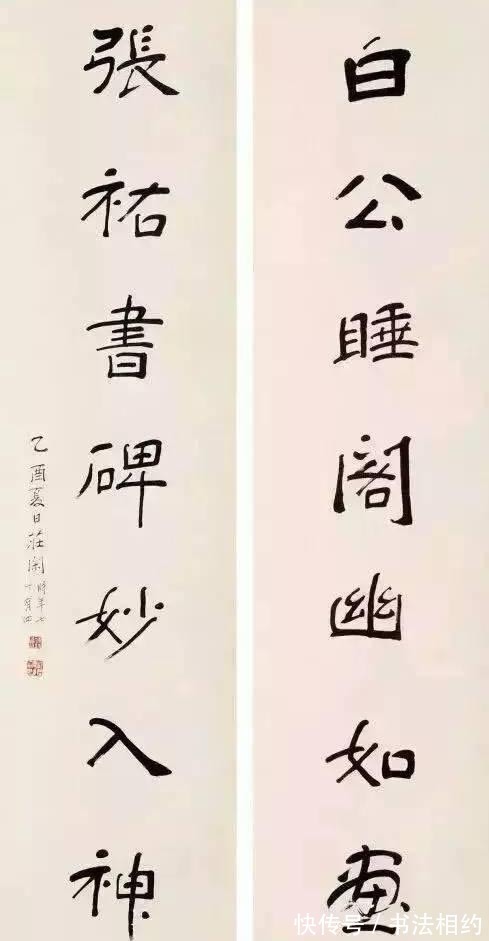 白公睡閣幽如畫
張祐書碑妙入神
乙酉夏日莊閑時年七
十有四
快传号 / 书法相约